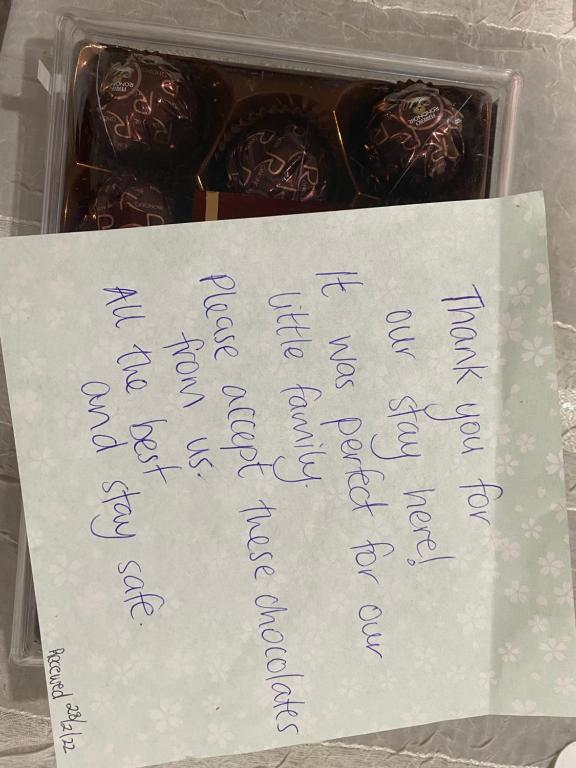 Thank you for
our stay here!
It was perfect for our
little family.
Please accept these chocolates
from us.
All the best
and stay safe.
Received 28/2/22
FERRERO
RONDNOIR
FERRERO
RONDNOIR